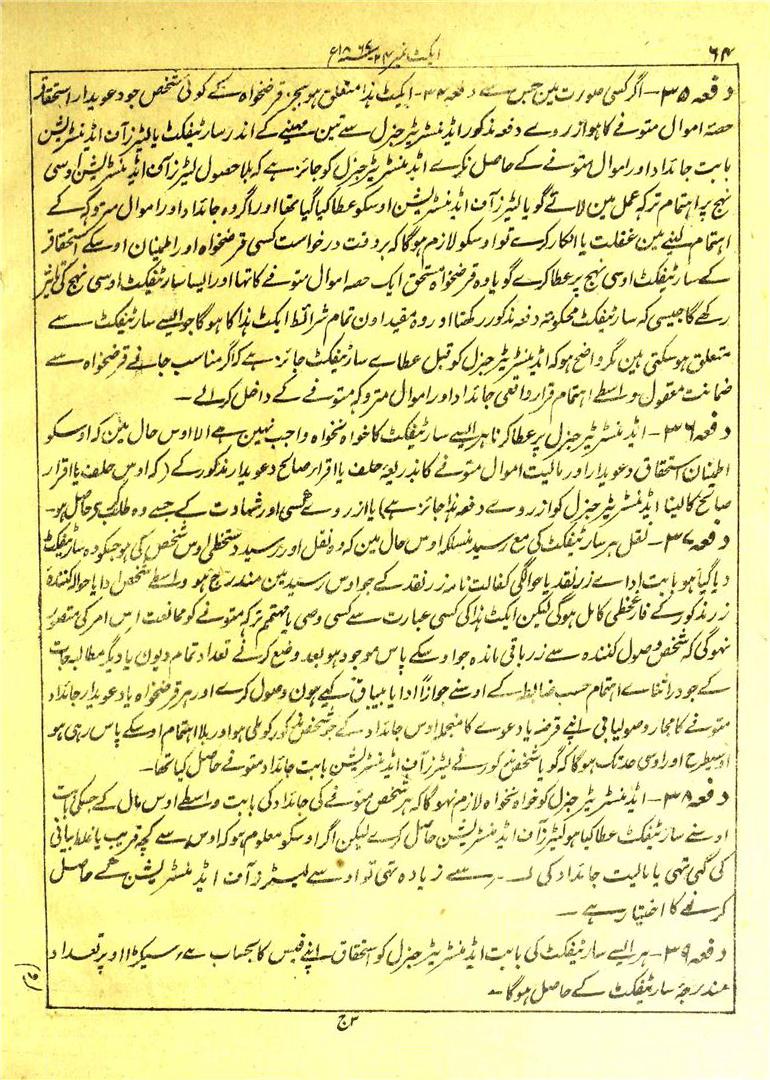 ۶۴
ایکٹ نمبر ۲۴ سنہ ۱۸۶۷ع
دفعہ ۳۵ – اگر کسی صورت مین جس سے دفعہ ۳۴ – ایکٹ ہذا متعلق ہو بجز قرضخواہ کے کوئی شخص جو دعویدار استحقاق
حصہ اموال متوفے کا ہو ازروے دفعہ مذکور ایڈمنسٹریٹر جنرل سے تین مہینے کے اندر سارٹیفکٹ یا لیٹرز آف ایڈمنسٹریشن
بابت جائداد اور اموال متوفے کے حاصل نکرے ایڈمنسٹریٹر جنرل کو جائز ہے کہ بلا حصول لیٹرز آف ایڈمنسٹریشن اوسی
نہج پر اہتمام ترکہ عمل مین لاے گویا لیٹرز آف ایڈمنسٹریشن اوسکو عطا کیا گیا تھا اور اگر وہ جائداد اور اموال متروکہ کے
اہتمام کرنے مین غفلت یا انکار کرے تو اوسکو لازم ہوگا کہ بروقت درخواست کسی قرضخواہ اور اطمینان اوسکے استحقاق
کے سارٹیفکٹ اوسی نہج پر عطا کرے گویا وہ قرضخواہ مستحق ایک حصہ اموال متوفے کا تھا اور ایسا سارٹیفکٹ اوسی نہج کی تاثیر
رکھے گا جیسی کہ سارٹیفکٹ محکومہ دفعہ مذکور رکھتا اور وہ مقید اون تمام شرائط ایکٹ ہذا کا ہوگا جو ایسے سارٹیفکٹ سے
متعلق ہو سکتی ہین مگر واضح ہو کہ ایڈمنسٹریٹر جنرل کو قبل عطاے سارٹیفکٹ جائز ہے کہ اگر مناسب جانے قرضخواہ سے
ضمانت معقول واسطے اہتمام قرار واقعی جائداد اور اموال متروکہ متوفے کے داخل کرالے –
دفعہ ۳۶ – ایڈمنسٹریٹر جنرل پر عطا کرنا ہر ایسے سارٹیفکٹ کا خواہ نخواہ واجب نہین ہے الا اوس حال مین کہ اوسکو
اطمینان استحقاق دعویدار اور مالیت اموال متوفے کا بذریعہ حلف یا اقرار صالح دعویدار مذکور کے (کہ اوس حلف یا اقرار
صالح کا لینا ایڈمنسٹریٹر جنرل کو ازروے دفعہ ہذا جائز ہے) یا ازروے کسی اور شہادت کے جسے وہ طلب کرے حاصل ہو –
دفعہ ۳۷ – نقل ہر سارٹیفکٹ کی مع رسید منسلکہ اوس حال مین کہ وہ نقل اور رسید دستخطی اوس شخص کی ہو جسکو وہ سارٹیفکٹ
دیا گیا ہو بابت اداے زر نقد یا حوالگی کفالت نامہ زر نقد کے جو اوس رسید مین مندرج ہو واسطے شخص ادا یا حوالہ کنندہ
زر مذکور کے فارغخطی کامل ہوگی لیکن ایکٹ ہذا کی کسی عبارت سے کسی وصی یا مہتمم ترکہ متوفے کو ممانعت اس امر کی متصور
نہوگی کہ شخص وصول کنندہ سے زر باقی ماندہ جو اوسکے پاس موجود ہو بعد وضع کرنے تعداد تمام دیون یا دیگر مطالبہ جات
کے جو در اثناے اہتمام حسب ضابطہ کے اوسنے جوازاً ادا یا بیباق کیے ہون وصول کرے اور ہر قرضخواہ یا دعویدار جائداد
متوفے کا مجاز وصولیابی اپنے قرضہ یا دعوے کا منجملہ اوس جائداد کے جو شخص مذکور کو ملی ہو اور بلا اہتمام اوسکے پاس رہی ہو
اوسیطرح اور اوسی حد تک ہوگا کہ گویا شخص مذکور نے لیٹرز آف ایڈمنسٹریشن بابت جائداد متوفے حاصل کیا تھا –
دفعہ ۳۸ – ایڈمنسٹریٹر جنرل کو خواہ نخواہ لازم نہوگا کہ ہر شخص متوفے کی جائداد کی بابت واسطے اوس مال کے جسکی بابت
اوسنے سارٹیفکٹ عطا کیا ہو لیٹرز آف ایڈمنسٹریشن حاصل کرے لیکن اگر اوسکو معلوم ہو کہ اوس سے کچھ فریب یا غلط بیانی
کی گئی تھی یا مالیت جائداد کی سے زیادہ تھی تو اوسے لیٹرز آف ایڈمنسٹریشن کے حاصل
کرنے کا اختیار ہے –
دفعہ ۳۹ – ہر ایسے سارٹیفکٹ کی بابت ایڈمنسٹریٹر جنرل کو استحقاق اپنے فیس کا بحساب سیکڑا اوپر تعداد
مندرجہ سارٹیفکٹ کے حاصل ہوگا –
۳ج